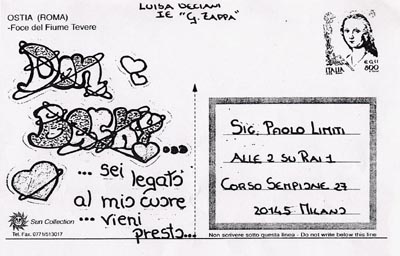 LUISA DECIANI
IE "G. ZAPPA"
OSTIA (ROMA)
-Foce del Fiume Tevere
ITALIA 800
Don
Backy...
... sei
legato
al mio cuore
... vieni
presto...
SIG. PAOLO LIMITI
ALLE 2 SU RAI 1
CORSO SEMPIONE 27
20145 MILANO
Sun Collection
Tel. Fax. 0771/513017
Non scrivere sotto questa linea - Do not write below this line